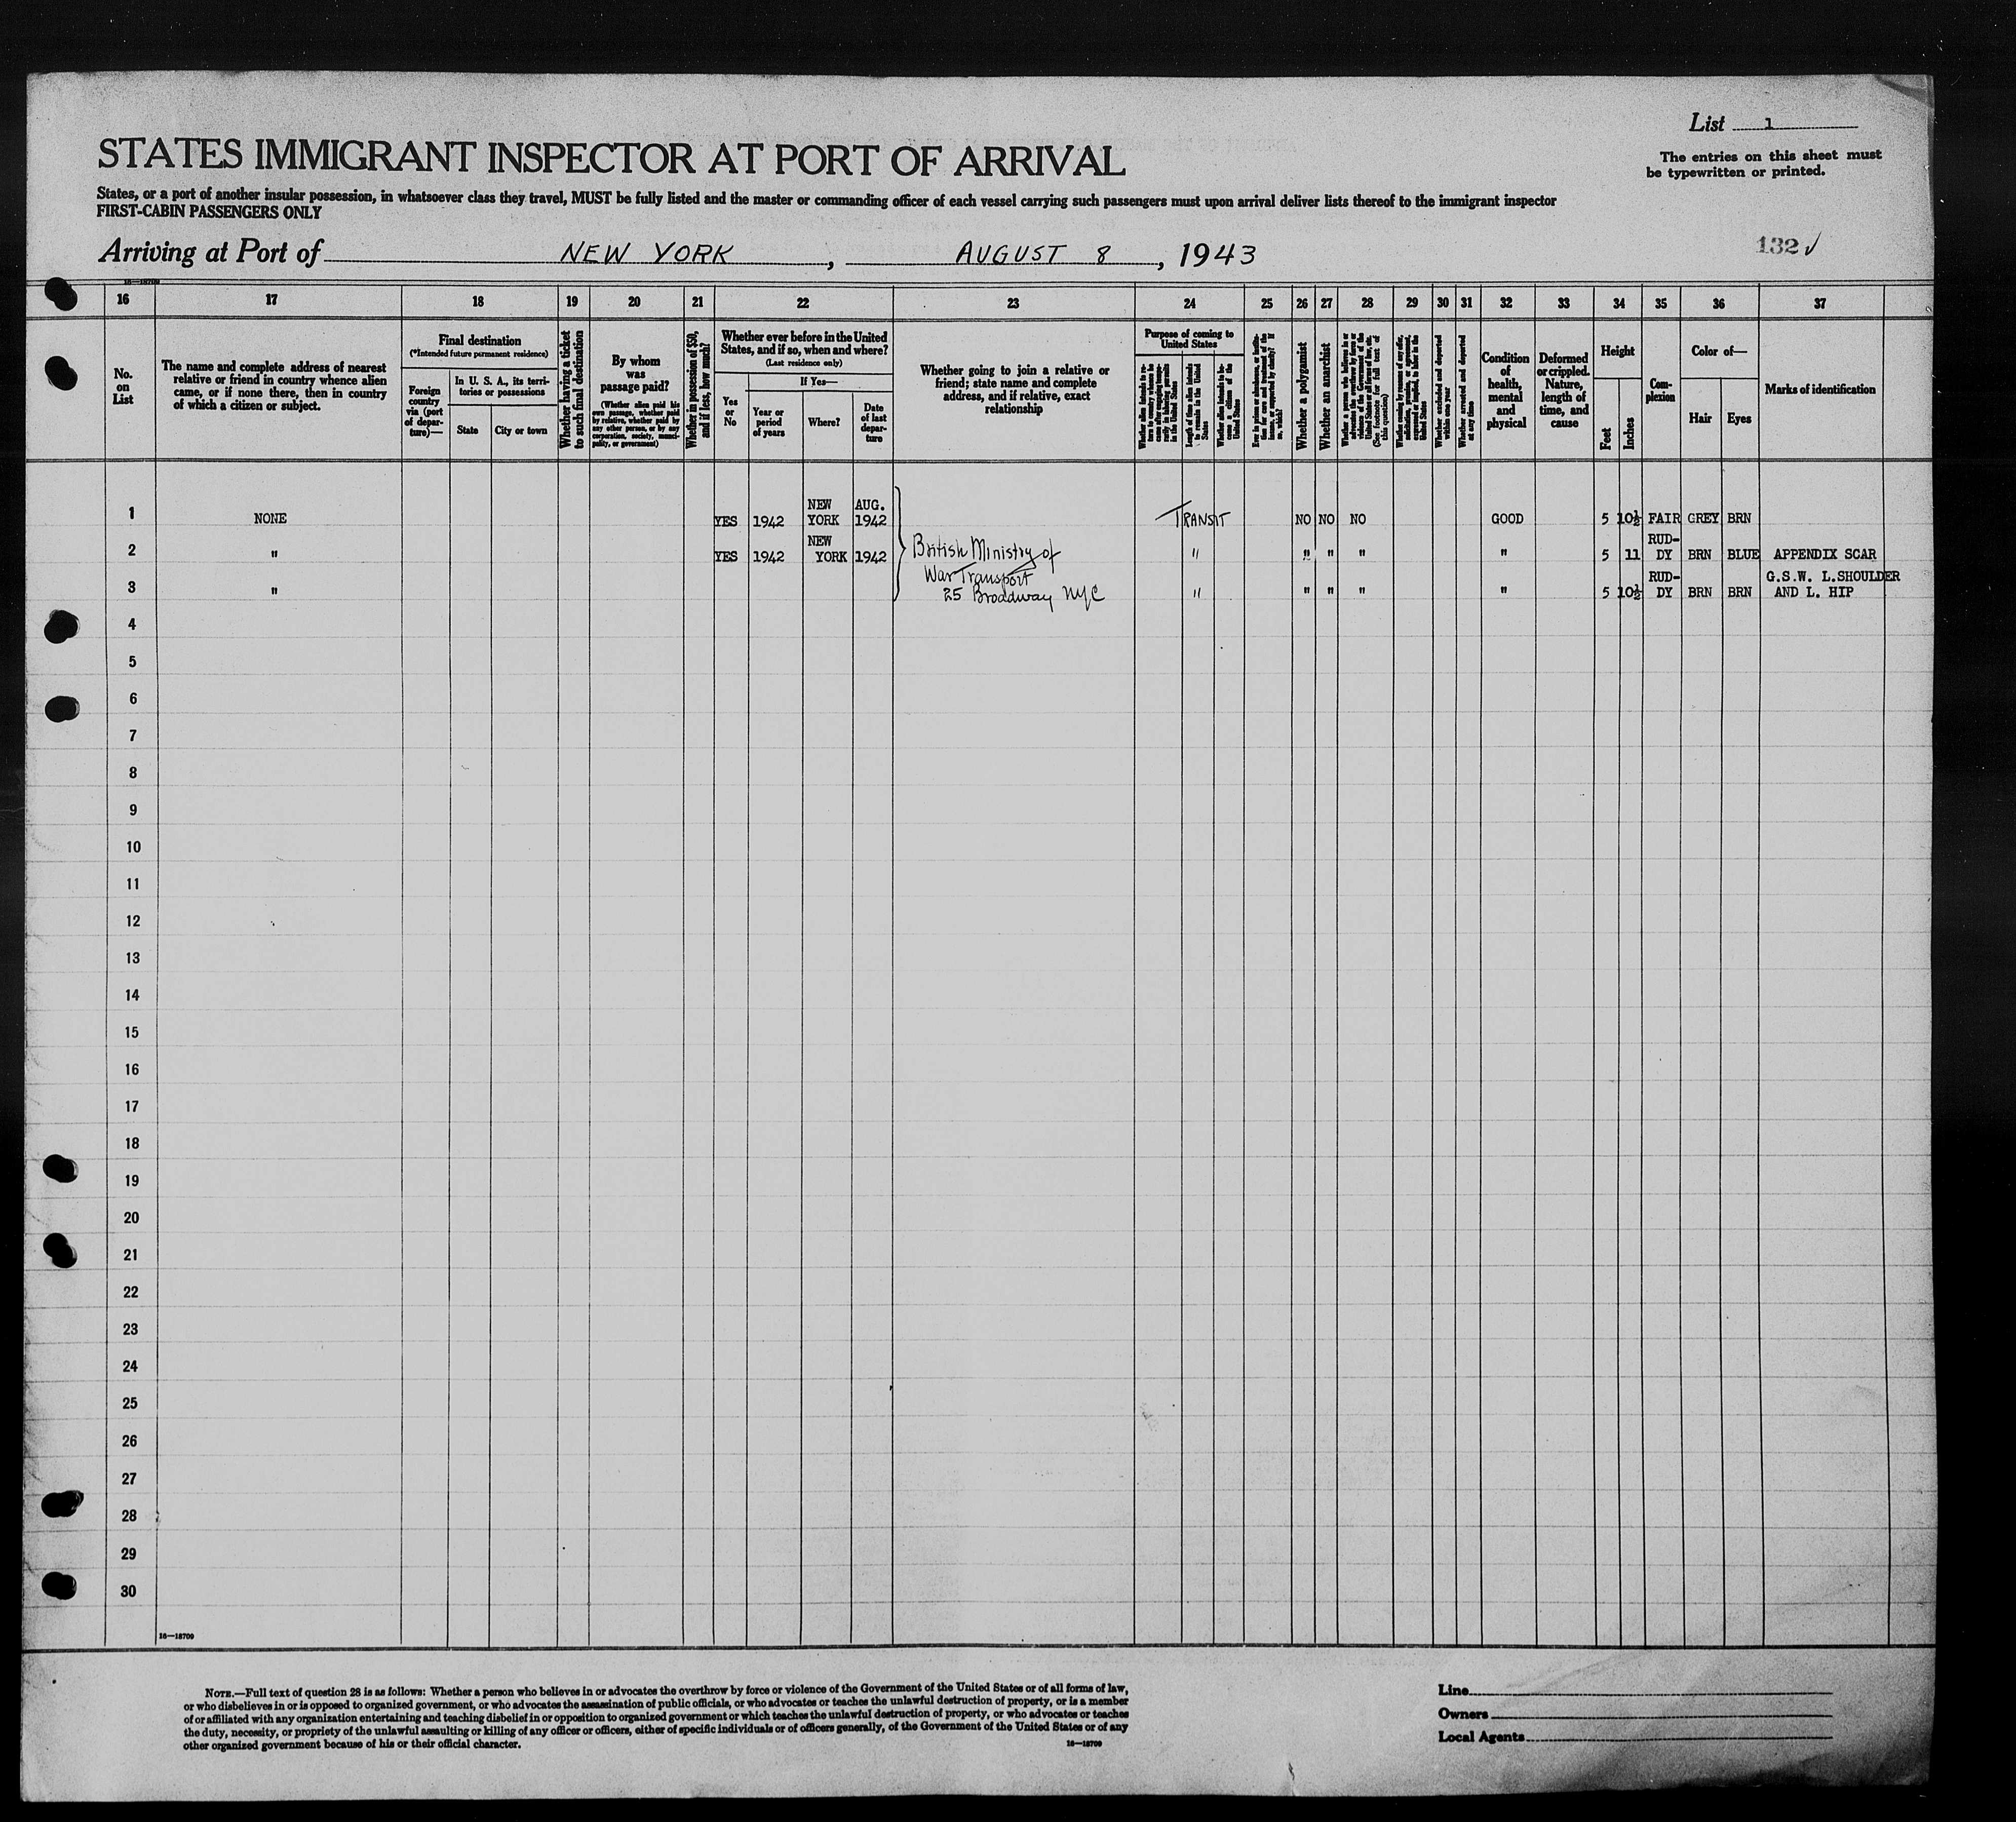 List 1
The entries on this sheet must
be typewritten or printed.
STATES IMMIGRANT INSPECTOR AT PORT OF ARRIVAL
States, or a port of another insular possession, in whatsoever class they travel, MUST be fully listed and the master or commanding officer of each vessel carrying such passengers must upon arrival deliver lists thereof to the immigrant inspector
FIRST-CABIN PASSENGERS ONLY
Arriving at Port of NEW YORK, AUGUST 8, 1943
132 ✓
16—18709
16 17 18 19 20 21 22 23 24 25 26 27 28 29 30 31 32 33 34 35 36 37
No.
on
List
The name and complete address of nearest
relative or friend in country whence alien
came, or if none there, then in country
of which a citizen or subject.
Final destination
(*Intended future permanent residence)
Foreign
country
via (port
of depar-
ture)—
In U. S. A., its terri-
tories or possessions
State
City or town
Whether having a ticket
to such final destination
By whom
was
passage paid?
(Whether alien paid his
own passage, whether paid
by relative, whether paid by
any other person, or by any
corporation, society, munici-
pality, or government)
Whether in possession of $50,
and if less, how much?
Whether ever before in the United
States, and if so, when and where?
(Last residence only)
Yes
or
No
If Yes—
Year or
period
of years
Where?
Date
of last
depar-
ture
Whether going to join a relative or
friend; state name and complete
address, and if relative, exact
relationship
Purpose of coming to
United States
Whether alien intends to re-
turn to country whence he
came after engaging tempo-
rarily in laboring pursuits
in the United States
Length of time alien intends
to remain in the United
States
Whether alien intends to be-
come a citizen of the
United States
Whether a polygamist
Whether an anarchist
Whether a person who believes in or
advocates the overthrow by force or
violence of the Government of the
United States or all forms of law, etc.
(See footnote for full text of
this question)
Whether excluded and deported
within one year
Whether arrested and deported
at any time
Condition
of
health,
mental
and
physical
Deformed
or crippled.
Nature,
length of
time, and
cause
Height
Feet
Inches
Com-
plexion
Color of—
Hair
Eyes
Marks of identification
NEW AUG.
1 NONE YES 1942 YORK 1942 TRANSIT NO NO NO GOOD 5 10½ FAIR GREY BRN
NEW RUD-
2 " YES 1942 YORK 1942 British Ministry of " " " " " 5 11 DY BRN BLUE APPENDIX SCAR
War Transport RUD- G.S.W. L.SHOULDER
3 " 25 Broadway NYC " " " " " 5 10½ DY BRN BRN AND L. HIP
4
5
6
7
8
9
10
11
12
13
14
15
16
17
18
19
20
21
22
23
24
25
26
27
28
29
30
16—18709
NOTE.—Full text of question 28 is as follows: Whether a person who believes in or advocates the overthrow by force or violence of the Government of the United States or of all forms of law,
or who disbelieves in or is opposed to organized government, or who advocates the assassination of public officials, or who advocates or teaches the unlawful destruction of property, or is a member
of or affiliated with any organization entertaining and teaching disbelief in or opposition to organized government or which teaches the unlawful destruction of property, or who advocates or teaches
the duty, necessity, or propriety of the unlawful assaulting or killing of any officer or officers, either of specific individuals or of officers generally, of the Government of the United States or of any
other organized government because of his or their official character.
16—18709
Line
Owners
Local Agents